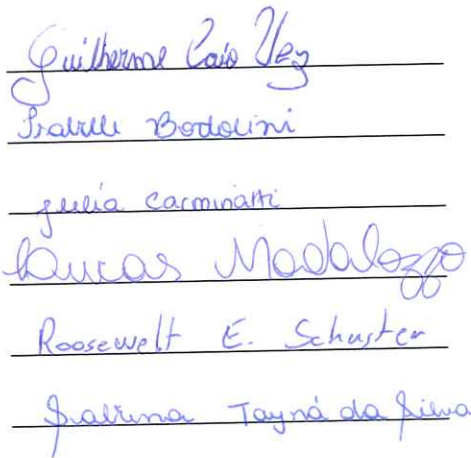 Guilherme Caio Vez
Isabelle Bodolini
Julia Carminatti
Lucas Madalozzo
Roosewelt E. Schuster
Sabrina Tayná da Silva